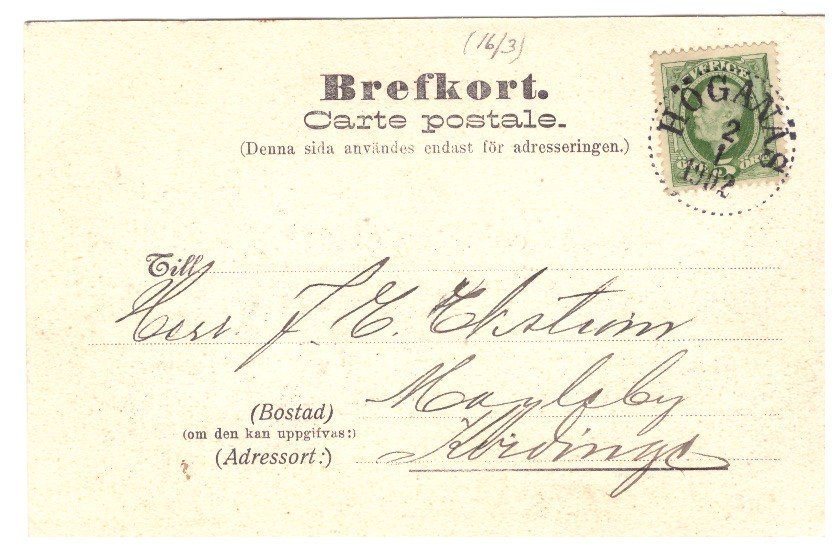 (16/3)
Brefkort.
Carte postale.
(Denna sida användes endast för adresseringen.)
SVERIGE
HÖGANÄS
2
1
1902
Till
Herr. J. E. Ekström
(Bostad)
(om den kan uppgifvas:)
(Adressort:)